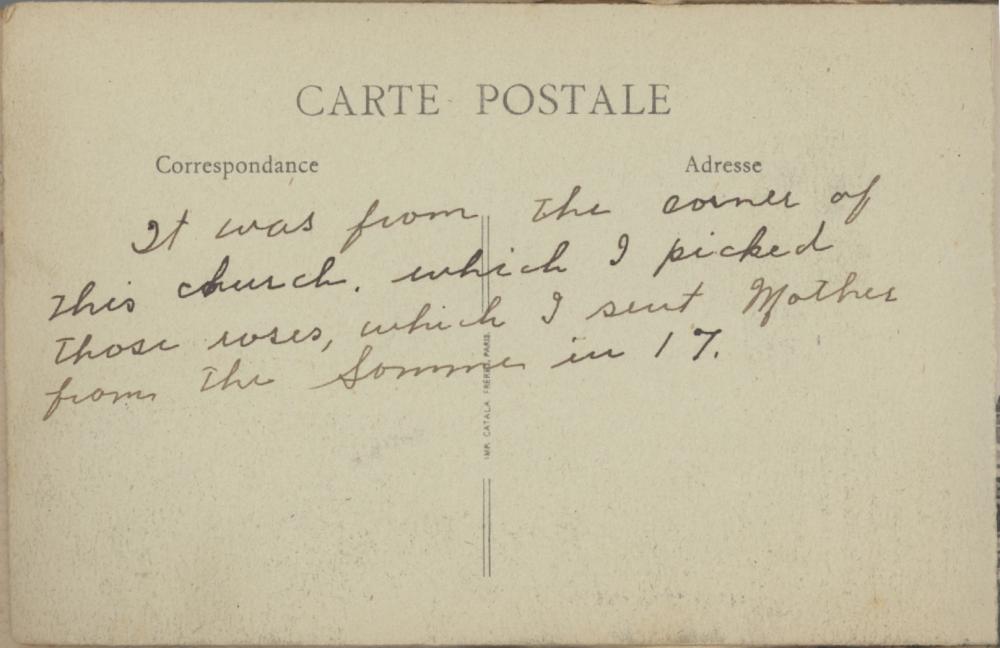 CARTE POSTALE
Correspondance
Adresse
It was from the corner of
this church, which I picked
those roses, which I sent Mother
from the Somme in 17.
IMP. CATALA FRÈRES, PARIS